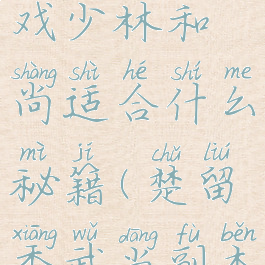 戏少林和
shàng shì hé shí me
尚适合什么
mì jí chǔ liú
秘籍(楚留
xiāng wǔ dāng fù běn
香武当副本